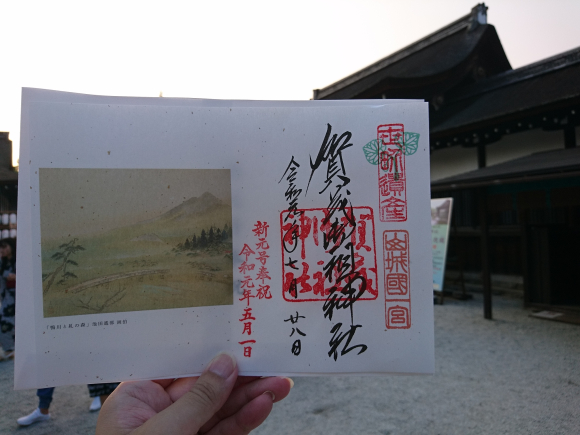 世界遺産
山城國一宮
賀茂御祖神社
賀茂
御祖
神社
令和元年七月廿八日
新元号奉祝
令和元年五月一日